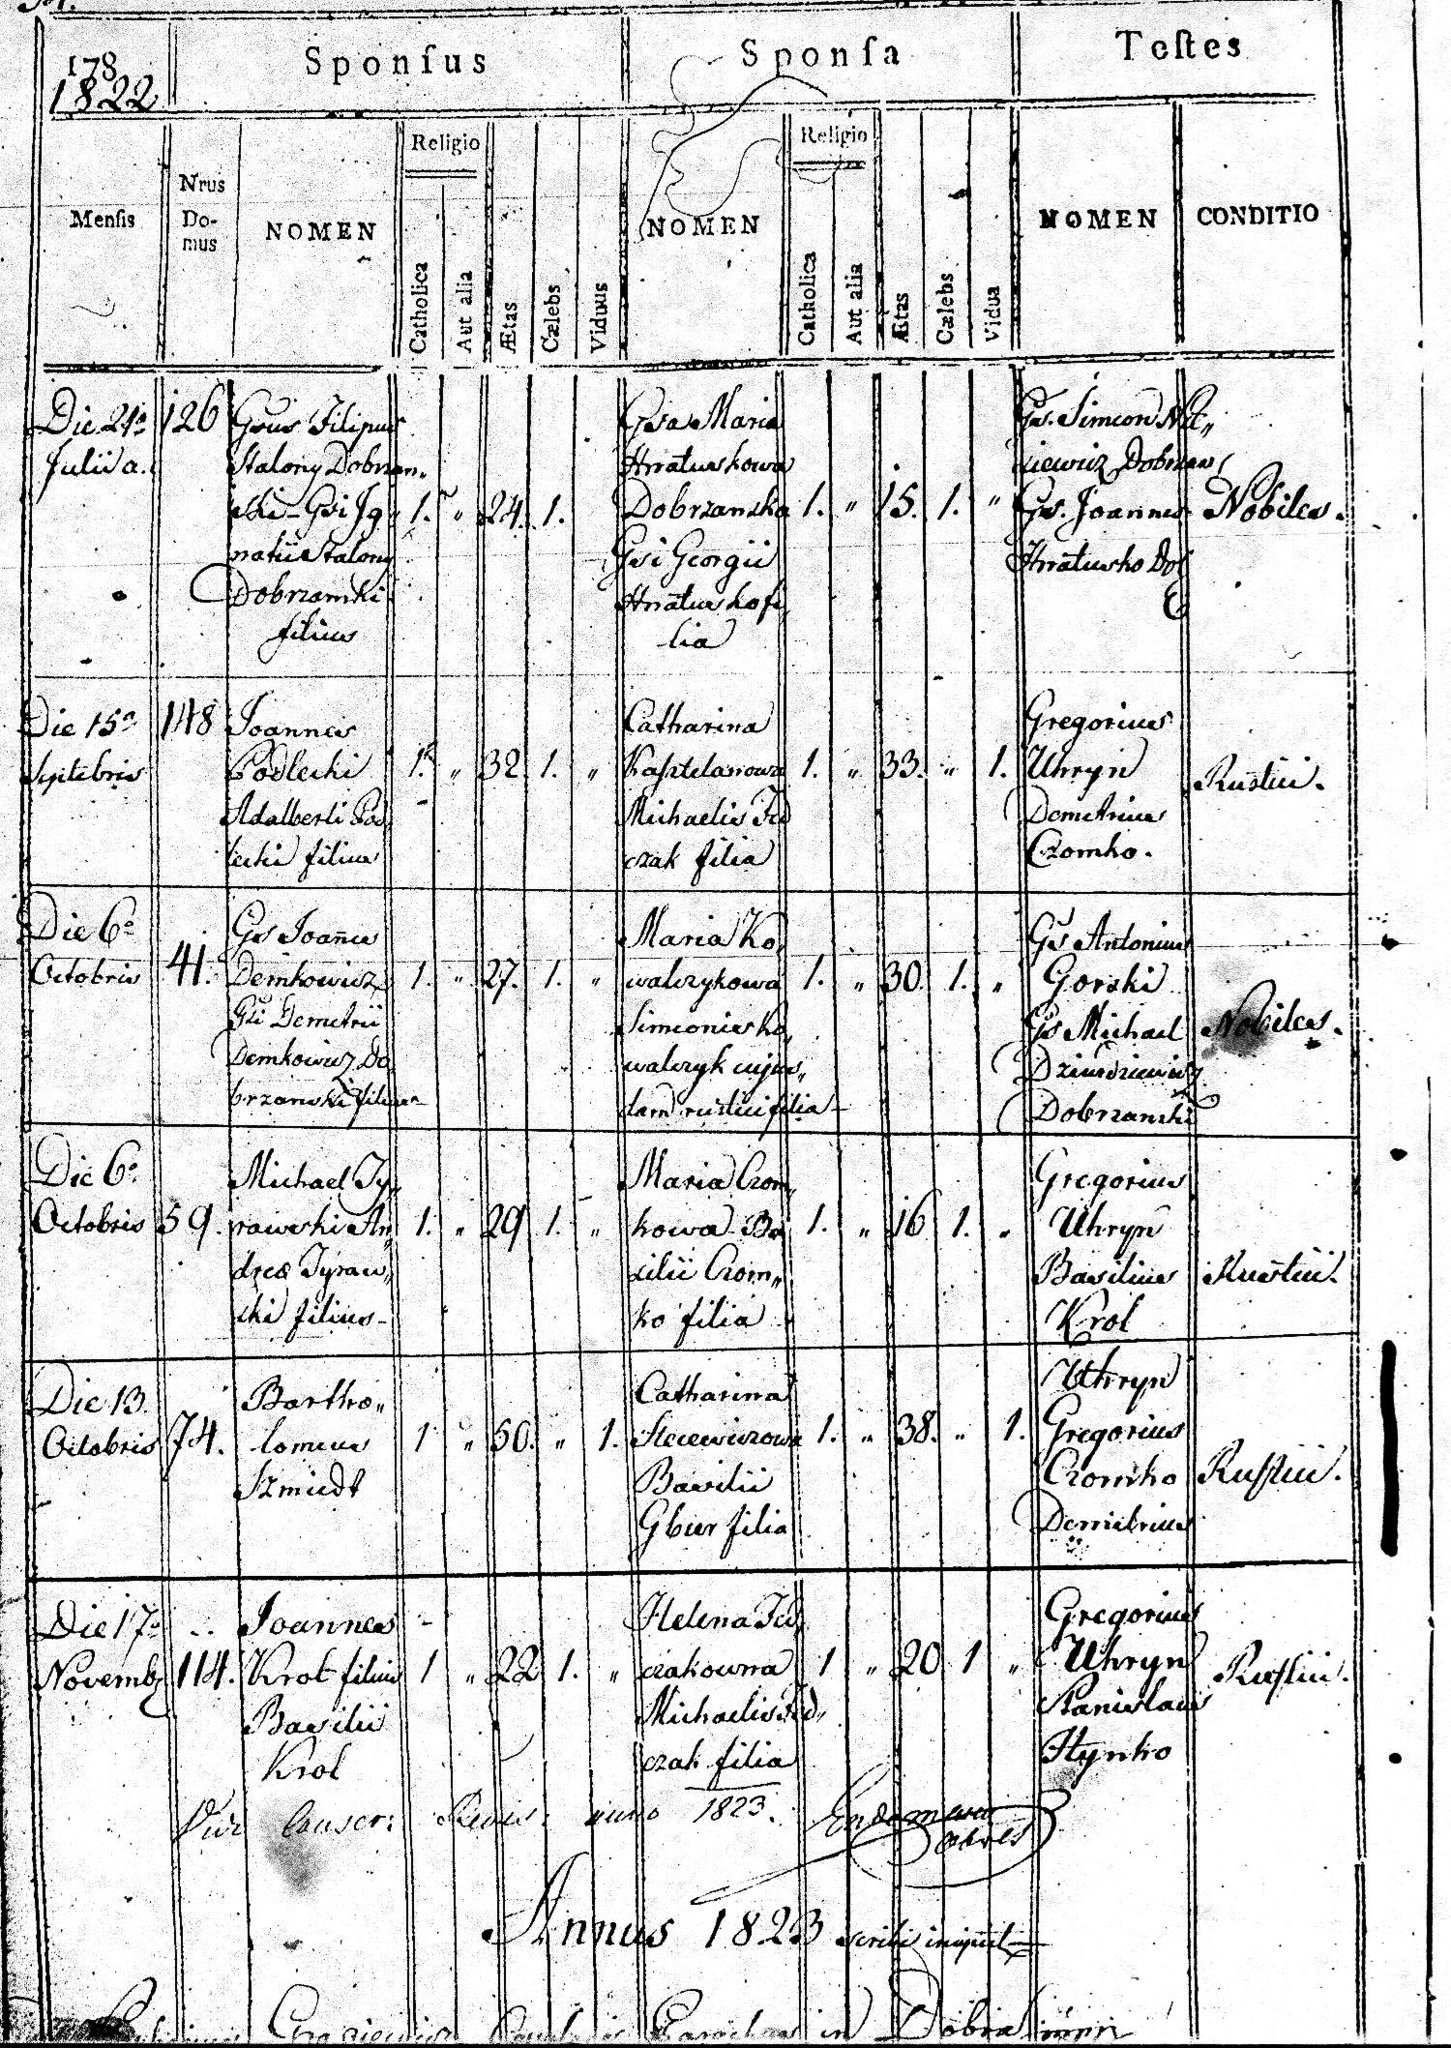 178
1822
Sponſus
Sponſa
Teſtes
Menſis
Nrus
Do-
mus
NOMEN
Religio
Catholica
Aut alia
Ætas
Cælebs
Viduus
NOMEN
Religio
Catholica
Aut alia
Ætas
Cælebs
Vidua
NOMEN
CONDITIO
Die 21a
Julii a.
126
Gsus Filipus
Stalony Dobrzan„
ski Gsi Ig
natii Stalony
Dobrzanski
filius
1. „ 24. 1.
Gsa Maria
Hnatuskowa
Dobrzanska
Gsi Georgii
Hnatusko fi
lia
1. „ 15. 1. „
Gs. Simeon
iewicz Dobrzan
Gs. Joannes
Hnatusko Do
Nobiles.
Die 15a
Septebris
148
Joannes
Podlecki
Adalberti Pod
lecki filius
1. „ 32. 1. „
Catharina
Kasztelanowa
Michaelis Fed
czak filia
1. „ 33. „ 1.
Gregorius
Uhryn
Demetrius
Czomko.
Rustici.
Die 6a
Octobris
41.
Gs Joañes
Demkowicz
Gsi Demetrii
Demkowicz Do
brzanski filius
1. „ 27. 1. „
Maria Ko
walczykowa
Simeonis Ko
walczyk cujus„
dam rustici filia
1. „ 30. 1. „
Gs Antonius
Gorski
Gs Michael
Dziurdziewicz
Dobrzanski
Nobiles.
Die 6a
Octobris
59.
Michael Ty„
rawski An
dreæ Tyraw„
ski filius
1. „ 29 1. „
Maria Czom„
kowa Ba
silii Czom„
ko filia
1. „ 16 1. „
Gregorius
Uhryn
Basilius
Krol
Rustici.
Die 13.
Octobris
74.
Bartho„
lomeus
Szmidt
1 „ 50. „ 1.
Catharina
Steciewiczowa
Basilii
Gbur filia
1. „ 38. „ 1.
Uhryn
Gregorius
Czomko
Demetrius
Rustici.
Die 17a
Novemb
114.
Joannes
Krol filius
Basilii
Krol
1 „ 22 1. „
Helena Fed
czakowna
Michaelis Fed„
czak filia
1 „ 20 1 „
Gregorius
Uhryn
Stanislaus
Hynko
Rustici.
Conscr: Revis. anno 1823.
Annus 1823 scribi incipit
in Dobra